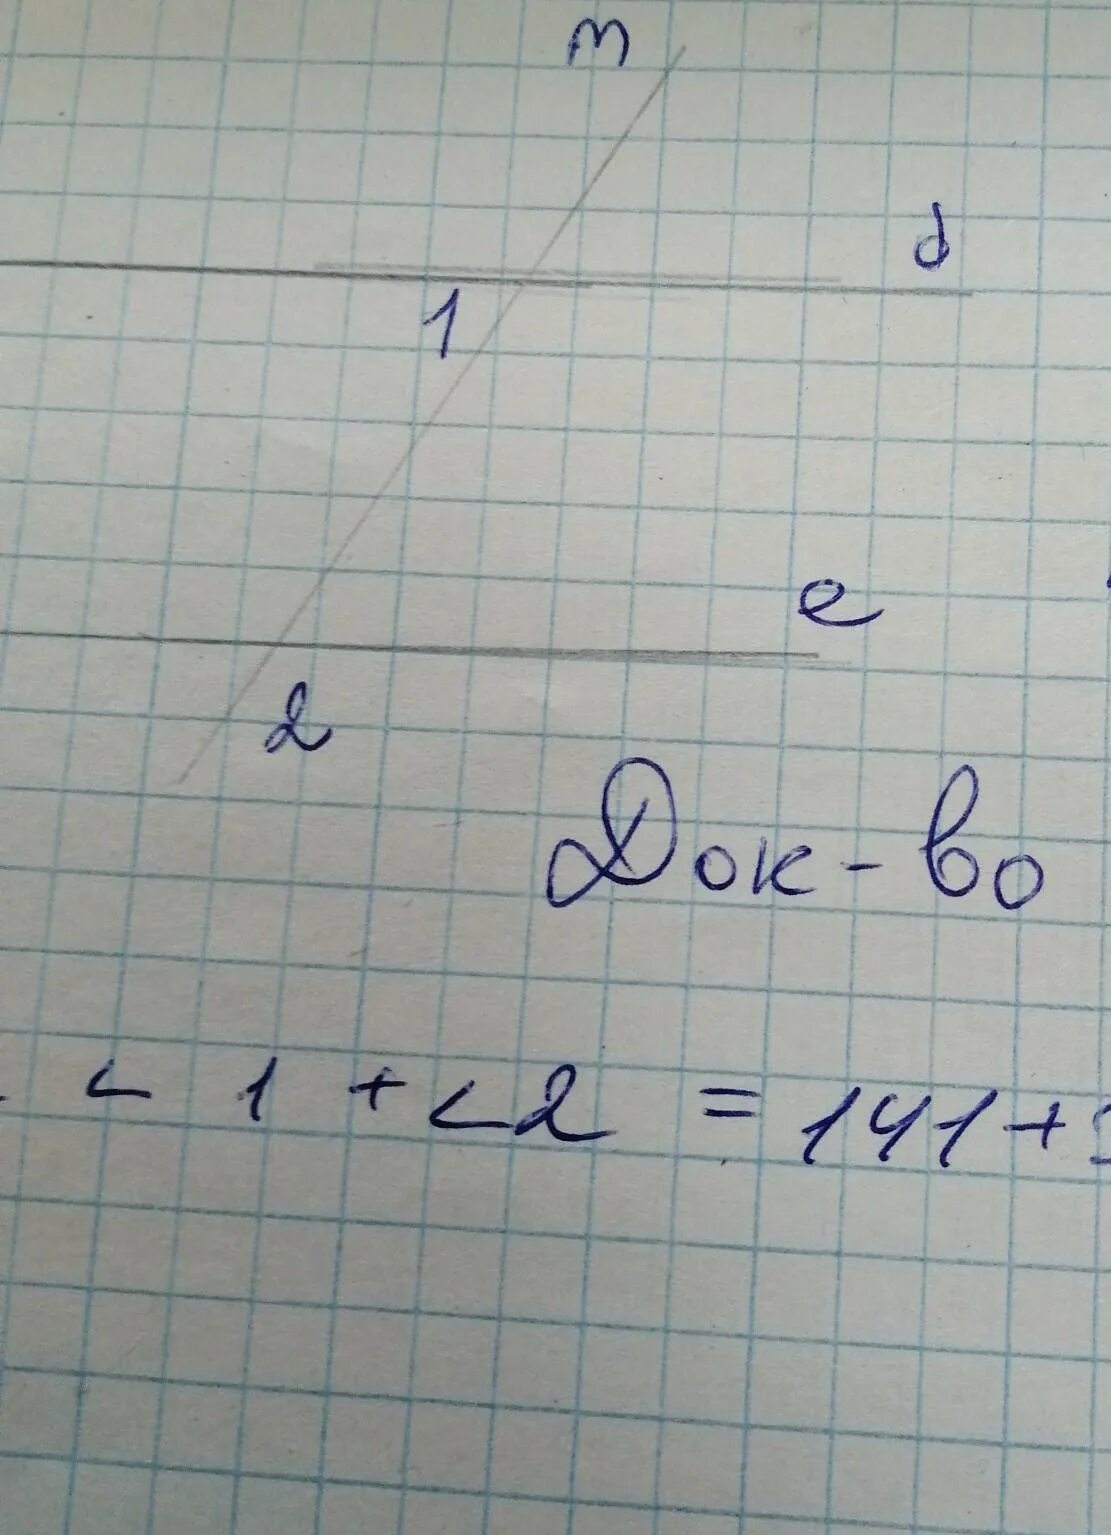 m
d
1
e
2
Док-во
< 1 + < 2 = 141 +